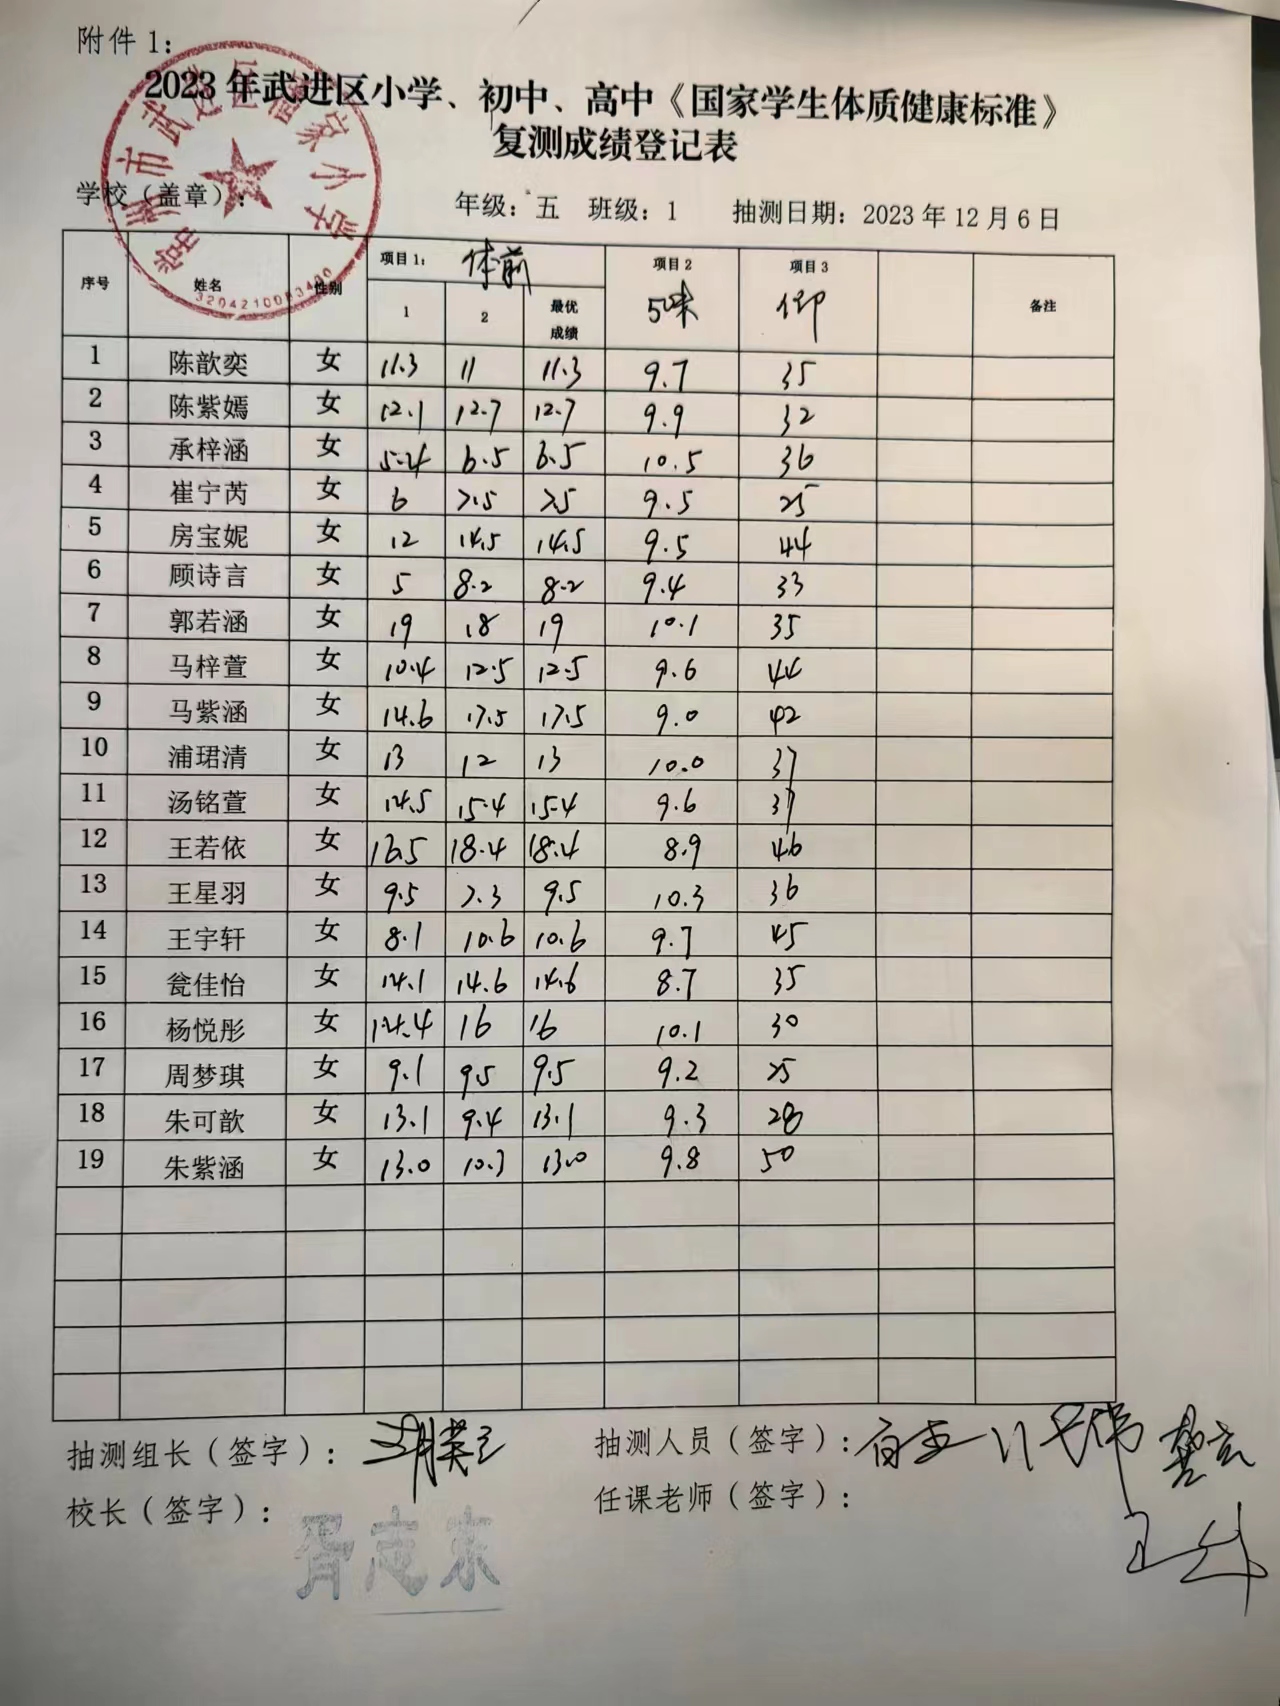 附件 1：
2023 年武进区小学、初中、高中《国家学生体质健康标准》
复测成绩登记表
学校（盖章）：
年级：五 班级：1 抽测日期：2023 年 12 月 6 日
序号 姓名 性别 项目 1： 体前 项目 2 项目 3 备注
1 2 最优成绩 50米 仰
1 陈歆奕 女 11.3 11 11.3 9.7 35
2 陈紫嫣 女 12.1 12.7 12.7 9.9 32
3 承梓涵 女 5.4 6.5 6.5 10.5 36
4 崔宁芮 女 6 7.5 7.5 9.5 25
5 房宝妮 女 12 14.5 14.5 9.5 44
6 顾诗言 女 5 8.2 8.2 9.4 33
7 郭若涵 女 19 18 19 10.1 35
8 马梓萱 女 10.4 12.5 12.5 9.6 44
9 马紫涵 女 14.6 17.5 17.5 9.0 42
10 浦珺清 女 13 12 13 10.0 37
11 汤铭萱 女 14.5 15.4 15.4 9.6 37
12 王若依 女 16.5 18.4 18.4 8.9 46
13 王星羽 女 9.5 7.3 9.5 10.3 36
14 王宇轩 女 8.1 10.6 10.6 9.7 45
15 瓮佳怡 女 14.1 14.6 14.6 8.7 35
16 杨悦彤 女 14.4 16 16 10.1 30
17 周梦琪 女 9.1 9.5 9.5 9.2 25
18 朱可歆 女 13.1 9.4 13.1 9.3 28
19 朱紫涵 女 13.0 10.3 13.0 9.8 50
抽测组长（签字）： 抽测人员（签字）：
校长（签字）： 胥志东 任课老师（签字）：